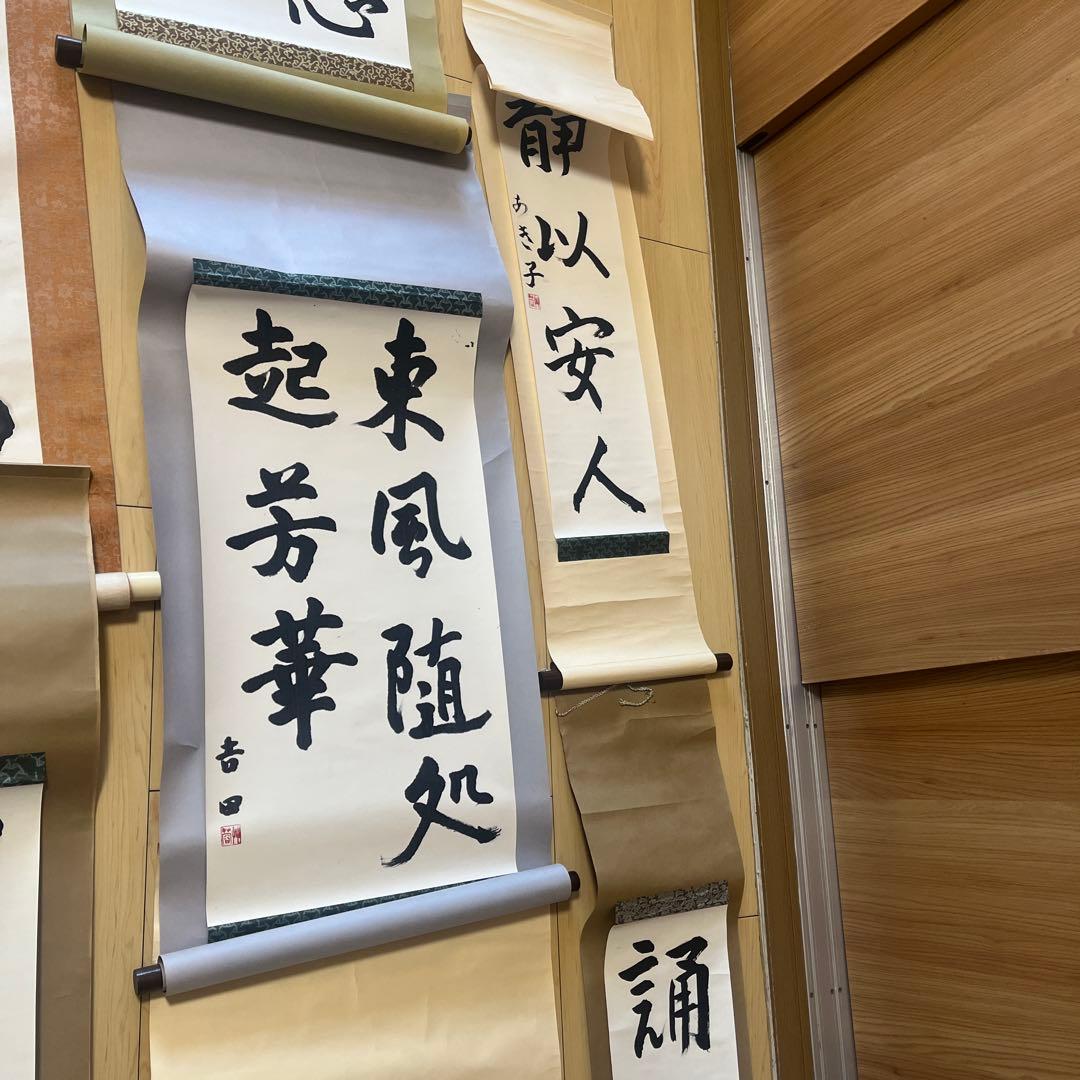 東風随処
起芳華
吉田
静以安人
あき子
誦